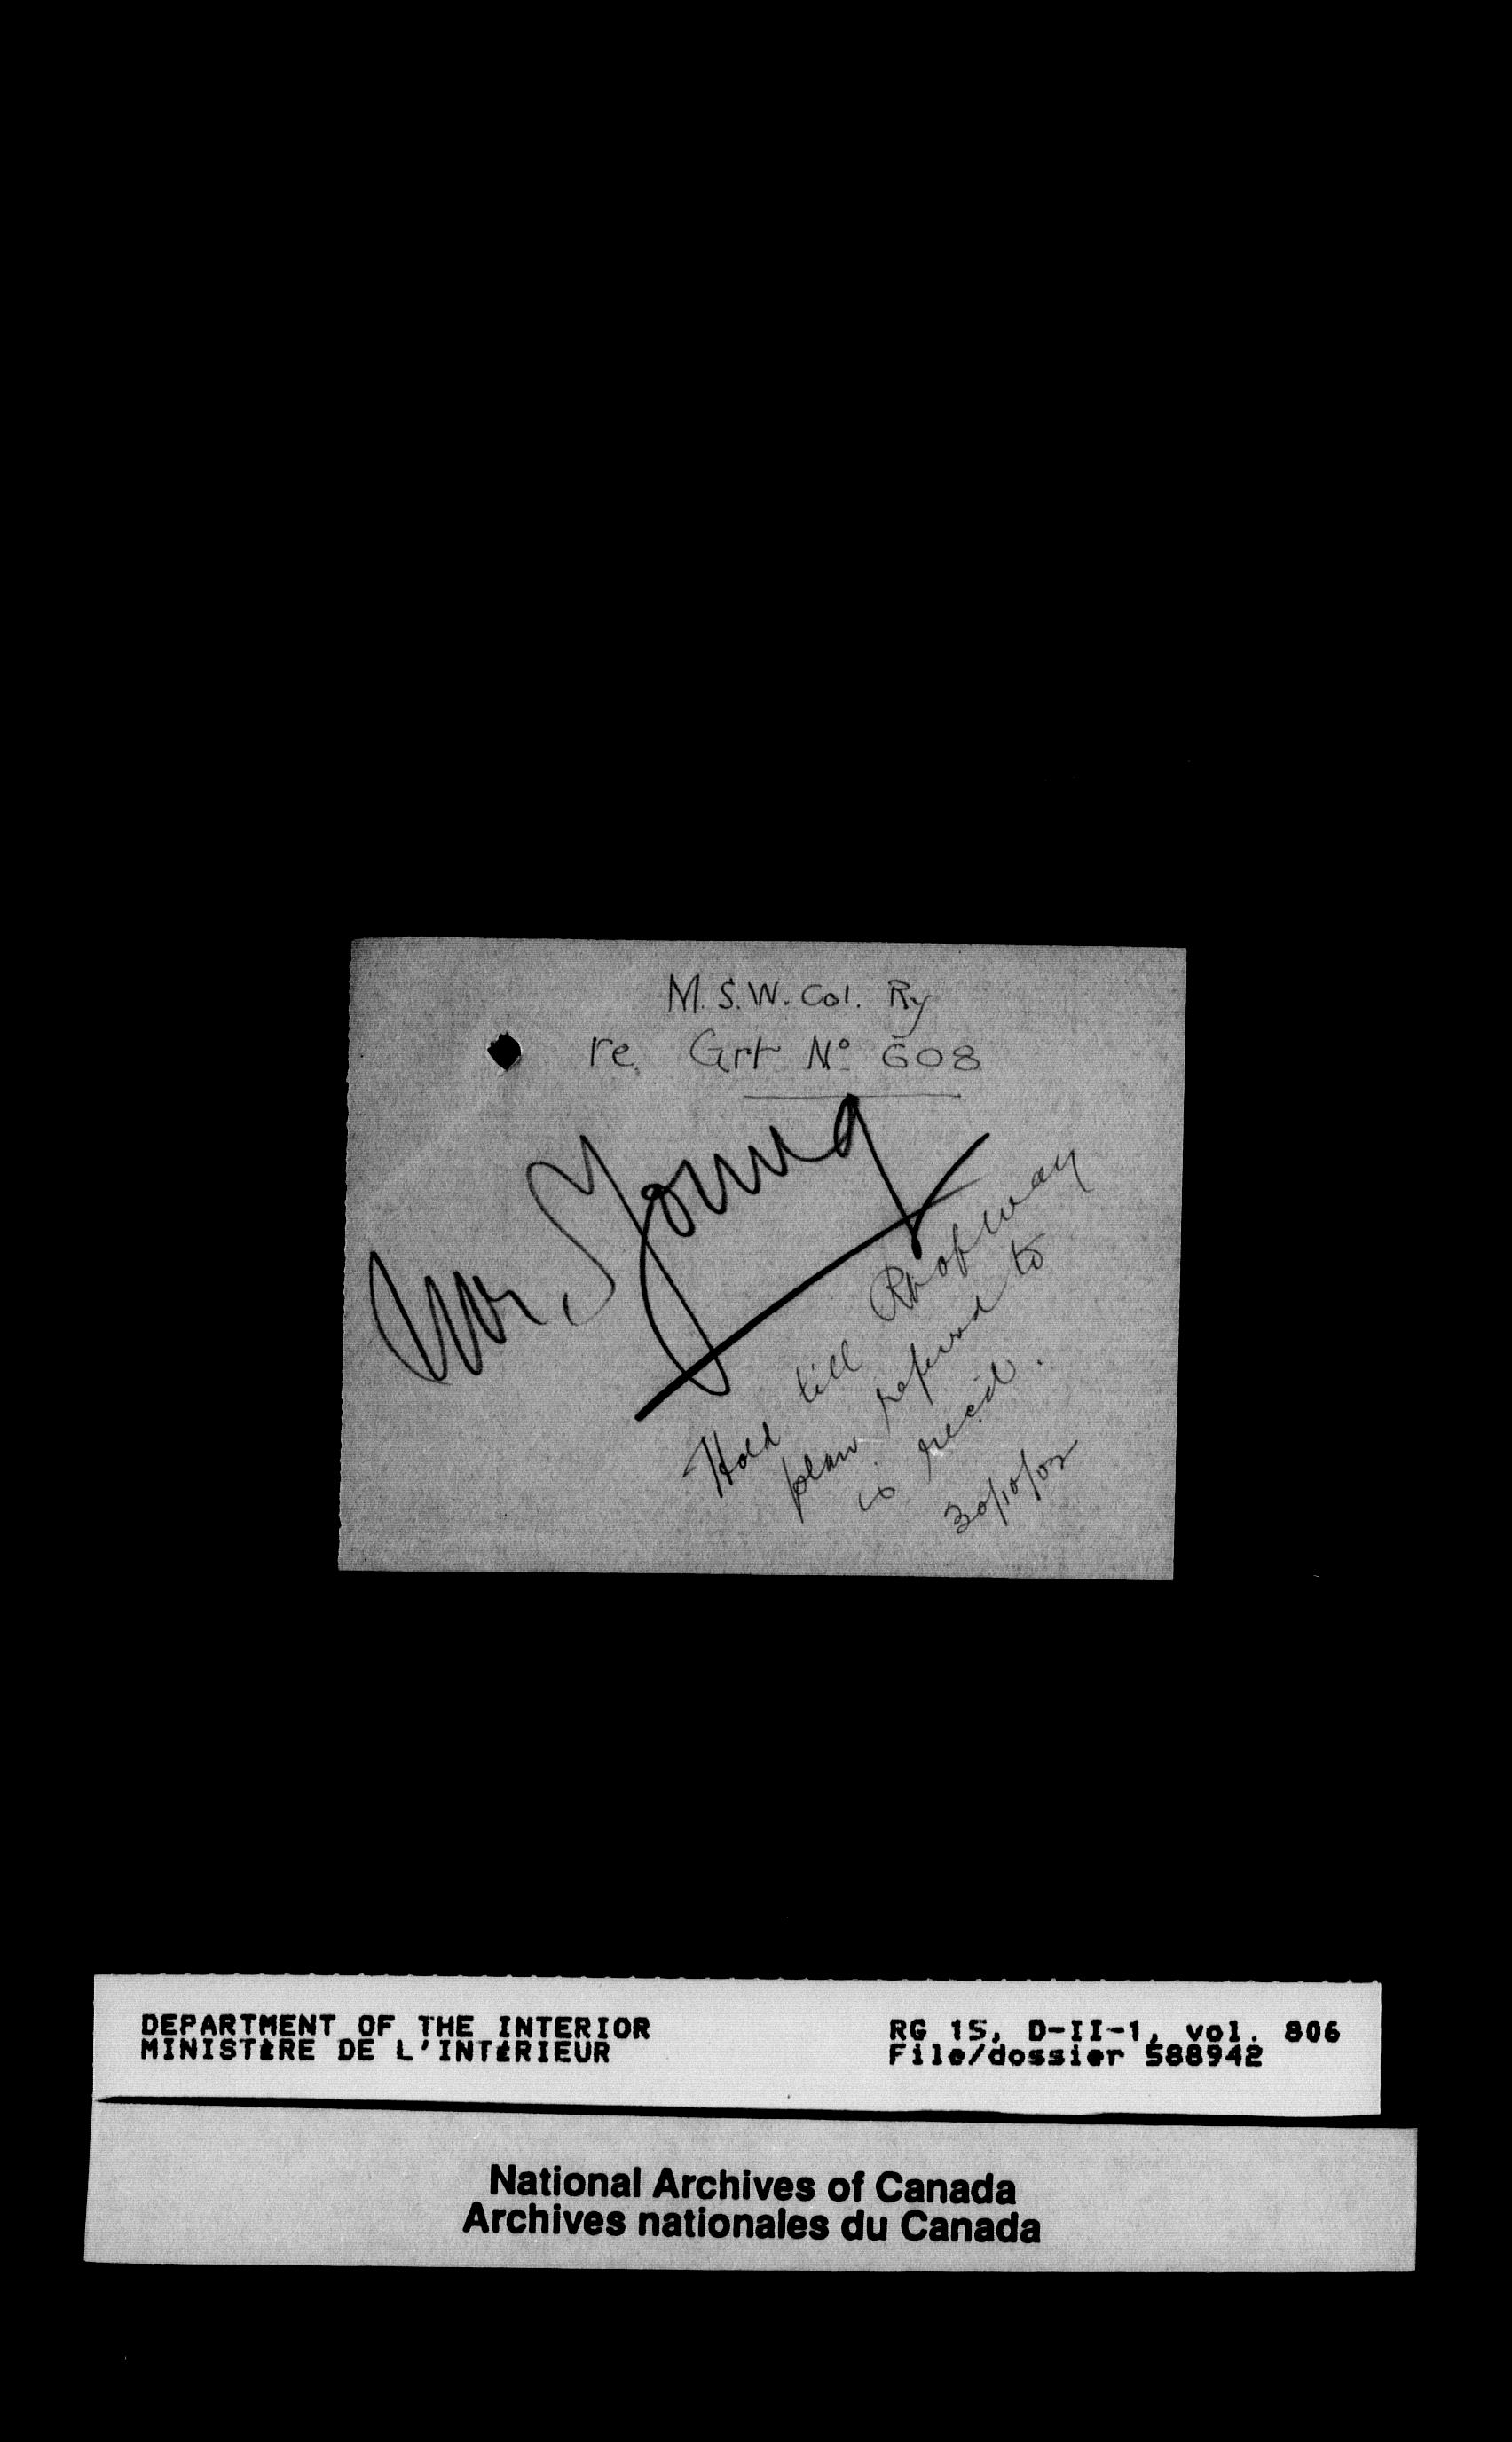 M. S. W. Col. Ry
re Grt Nº 608
Mr. Young
Hold till Rt of way
plan referred to
is rec'd.
30/10/02
DEPARTMENT OF THE INTERIOR
MINISTÈRE DE L'INTÉRIEUR
RG 15, D-II-1, vol. 806
File/dossier 588942
National Archives of Canada
Archives nationales du Canada